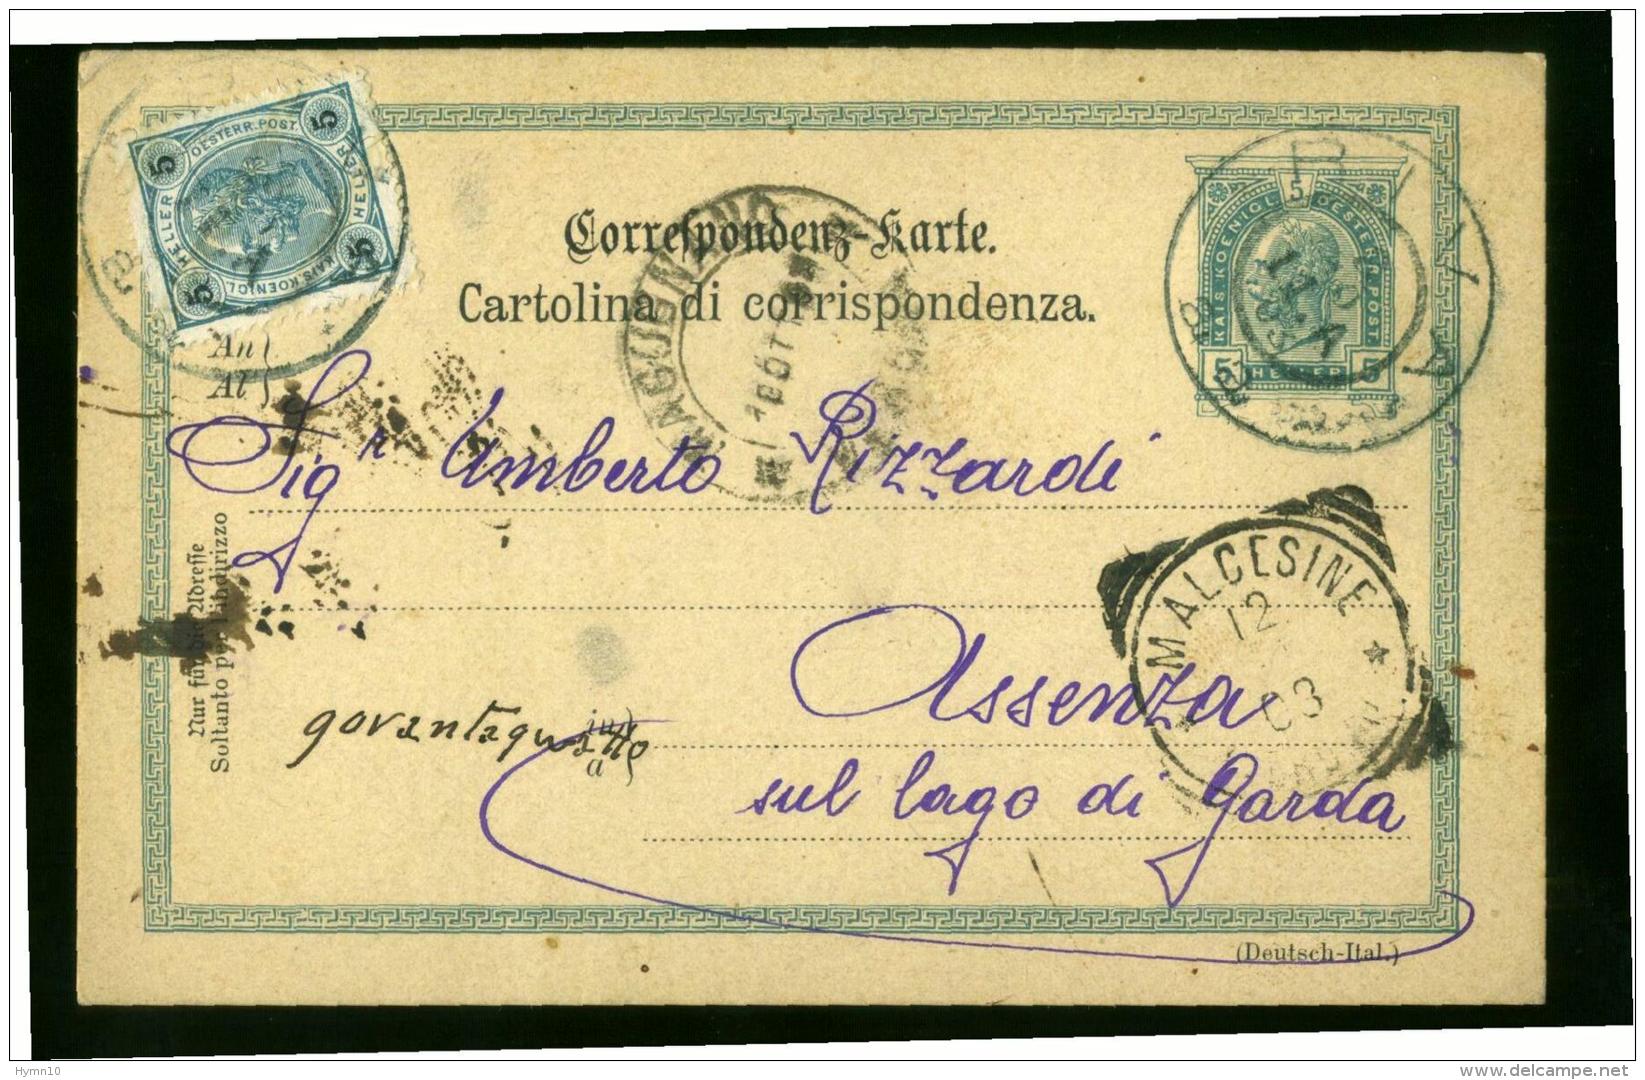 OESTERR. POST.
5 5
HELLER HELLER
5 5
KAIS. KOENIGL.
Correspondenz-Karte.
Cartolina di corrispondenza.
5
KAIS. KOENIGL. OESTERR. POST.
5 HELLER 5
RIVA
An
Al
Sigr Umberto Rizzardi
MALCESINE
12
03
Nur für die Adresse
Soltanto per l'indirizzo
in
a
Assenza
sul lago di Garda
(Deutsch-Ital.)
Hymn10
www.delcampe.net